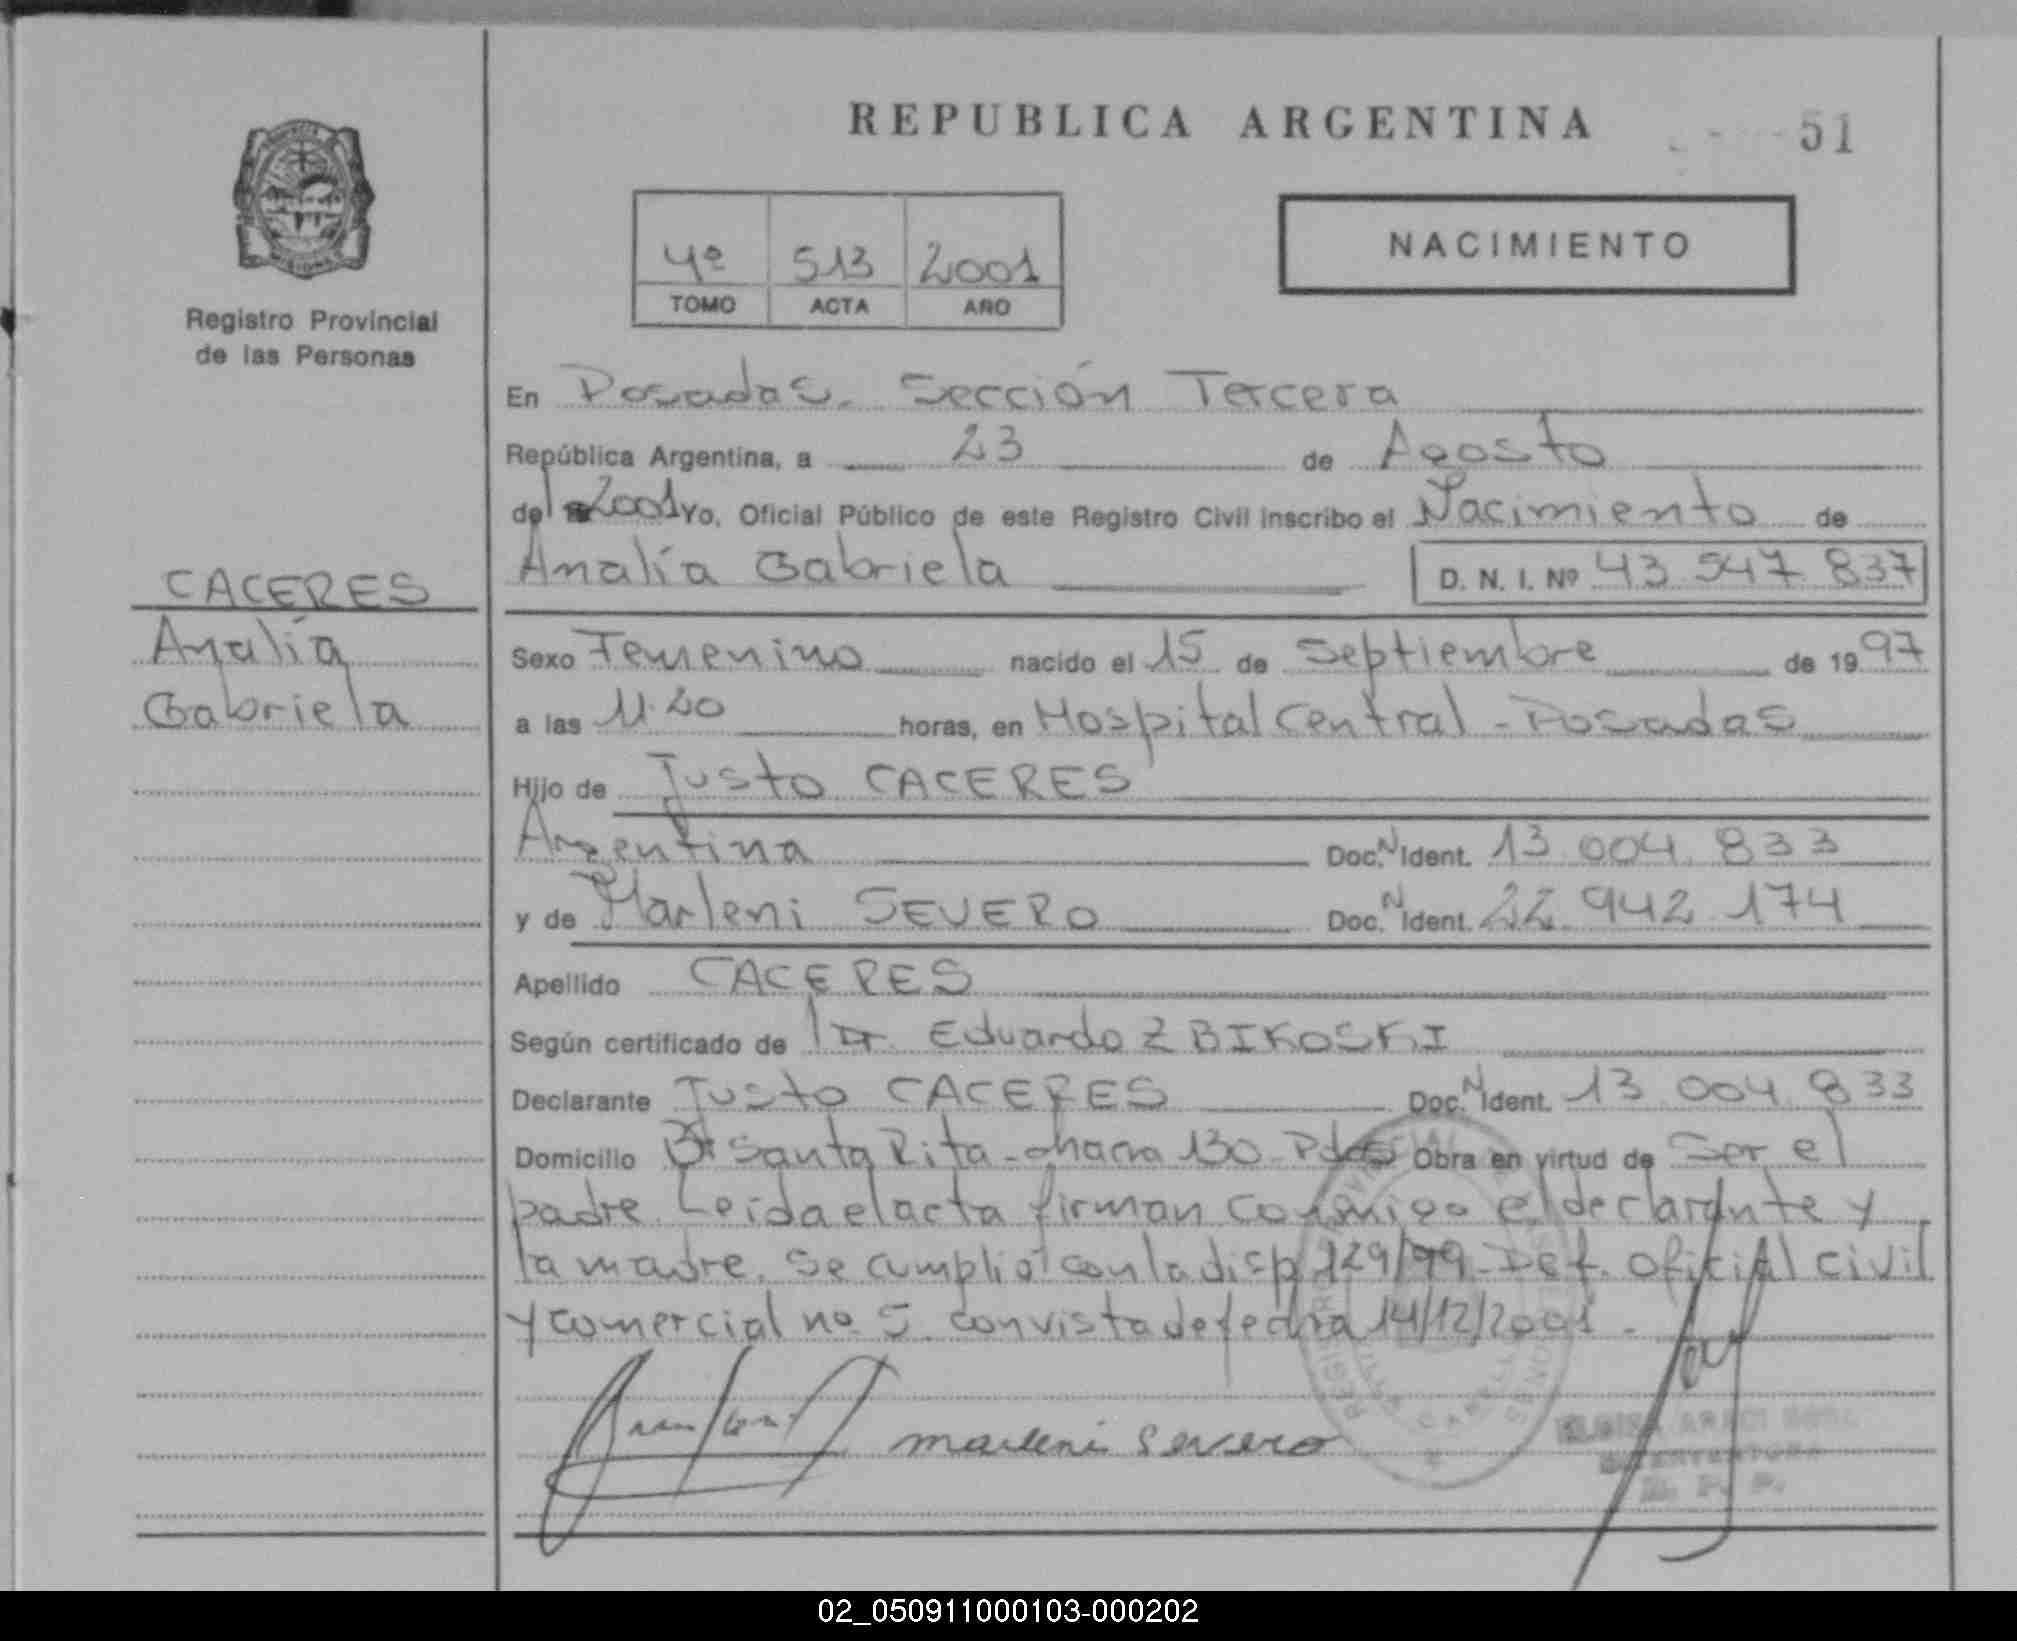 REPUBLICA ARGENTINA
51
Registro Provincial
de las Personas
4º 513 2001
TOMO ACTA AÑO
NACIMIENTO
En Posadas. Sección Tercera
República Argentina, a 23 de Agosto
del 2001 Yo, Oficial Público de este Registro Civil inscribo el Nacimiento de
CACERES
Analía
Gabriela
Analía Gabriela D. N. I. Nº 43.547.837
Sexo Femenino nacido el 15 de Septiembre de 1997
a las 11.20 horas, en Hospital Central - Posadas
Hijo de Justo CACERES
Argentina Doc. N Ident. 13.004.833
y de Marleni SEVERO Doc. N Ident. 22.942.174
Apellido CACERES
Según certificado de Dr. Eduardo ZBIKOSKI
Declarante Justo CACERES Doc. N Ident. 13.004.833
Domicilio Bº Santa Rita - chacra 130 - Pdas Obra en virtud de Ser el
padre. Leida el acta firman conmigo el declarante y
la madre. Se cumplió con la disp. 129/99 - Def. oficial civil
y comercial no. 5. con vista de fecha 14/12/2001.-
marleni Severo
INTERVENTORA
R. P. P.
02_050911000103-000202